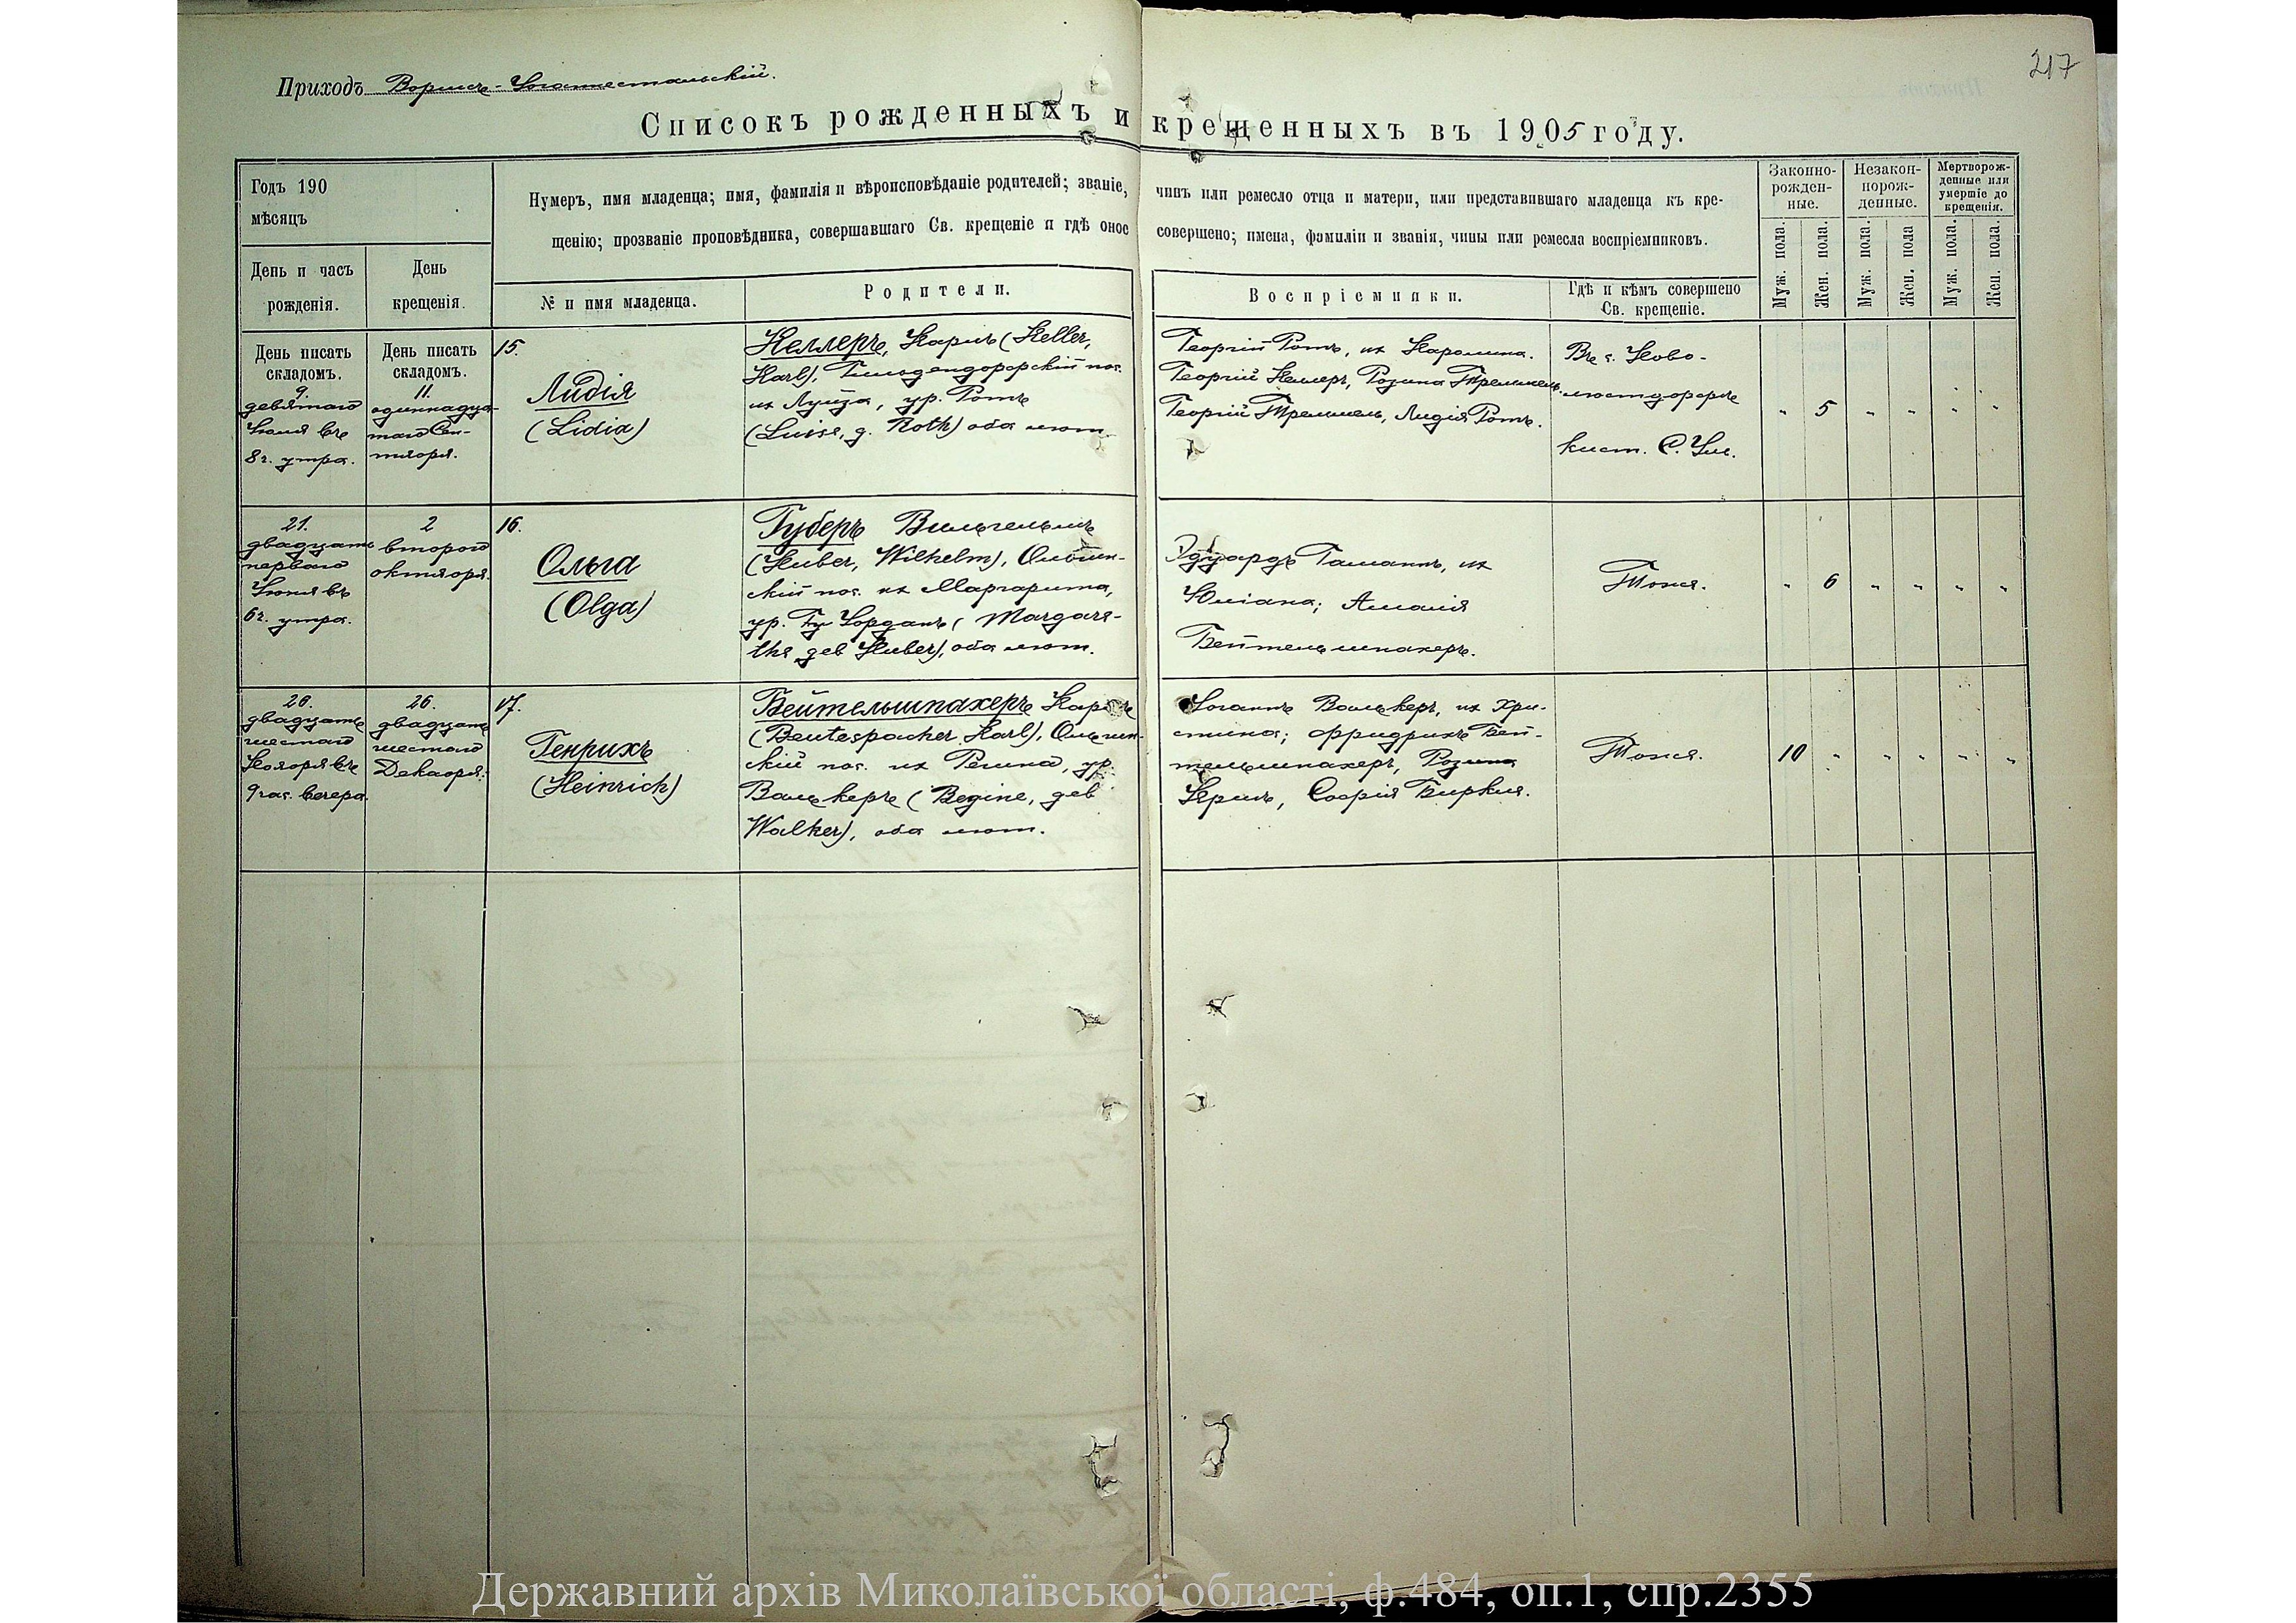 217
Приходъ Вормсъ-Іоганнестальскій.
Списокъ рожденныхъ и крещенныхъ въ 1905 году.
Годъ 190
мѣсяцъ
День и часъ
рожденія.
День
крещенія.
Нумеръ, имя младенца; имя, фамилія и вѣроисповѣданіе родителей; званіе, чинъ или ремесло отца и матери, или представившаго младенца къ кре-
щенію; прозваніе проповѣдника, совершавшаго Св. крещеніе и гдѣ оное совершено; имена, фамиліи и званія, чины или ремесла воспріемниковъ.
№ и имя младенца.
Родители.
Воспріемники.
Гдѣ и кѣмъ совершено
Св. крещеніе.
Законно-
рожден-
ные.
Незакон-
норож-
денные.
Мертворож-
денные или
умершіе до
крещенія.
Муж. пола.
Жен. пола.
Муж. пола.
Жен. пола
Муж. пола.
Жен. пола.
День писать
складомъ.
9.
девятаго
Іюля въ
8 ч. утра.
День писать
складомъ.
11.
одиннадца-
таго Сен-
тября.
15.
Лидія
(Lidia)
Келлеръ, Карлъ (Keller,
Karl), Гильдендорфскій пос.
их Луиза, ур. Ротъ
(Luise, g. Roth) оба лют.
Георгій Ротъ, их Каролина.
Георгій Келлеръ, Розина Треммель.
Георгій Треммель, Лидія Ротъ.
Въ с. Ново-
люстдорфѣ
кист. С.
" 5 " " " "
21.
двадцать
перваго
Іюня въ
6 ч. утра.
2
второго
октября.
16.
Ольга
(Olga)
Губеръ Вильгельмъ
(Huber, Wilhelm), Ольгин-
скій пос. их Маргарита,
ур. Іорданъ (Margare-
the geb Huber), оба лют.
Эдуардъ Гаманнъ, их
Юліана; Амалія
Бейтельшпахеръ.
Тоже.
" 6 " " " "
26.
двадцать
шестаго
Ноября въ
9 час. вечера.
26.
двадцать
шестаго
Декабря.
17.
Генрихъ
(Heinrich)
Бейтельшпахеръ Карлъ
(Beutespacher Karl), Ольгин-
скій пос. их Регина, ур.
Валькеръ (Regine, geb
Walker), оба лют.
Іоганнъ Валькеръ, их Хри-
стина; Фридрихъ Бей-
тельшпахеръ, Розина
Софія
Тоже.
10 " " " " "
Державний архів Миколаївської області, ф.484, оп.1, спр.2355